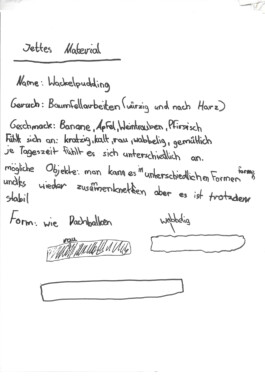 Jettes Material
Name: Wackelpudding
Geruch: Baumfällarbeiten (würzig und nach Harz)
Geschmack: Banane, Apfel, Weintrauben, Pfirsich
Fühlt sich an: kratzig, kalt, rau, wabbelig, gemütlich
je Tageszeit fühlt es sich unterschiedlich an.
mögliche Objekte: man kann es in unterschiedlichen Formen formen
und es wieder zusammenkneten aber es ist trotzdem
stabil
Form: wie Dachbalken
wabbelig
rau